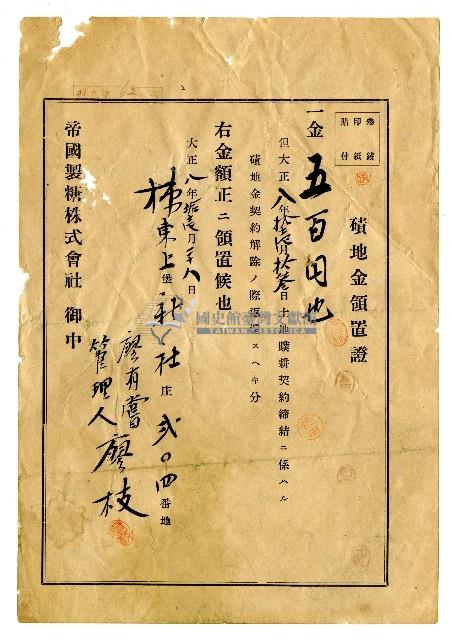 參錢
印紙
貼付
磧地金領置證
一金五百円也
但大正八年拾壹月拾叁日土地贌耕契約締結ニ係ハル
磧地金契約解除ノ際返還スヘキ分
右金額正ニ領置候也
大正八年拾壹月二十八日
棟東上堡社庄弍〇四番地
廖有當
管理人廖枝
帝國製糖株式會社 御中
國史館臺灣文獻館
TAIWAN HISTORICA